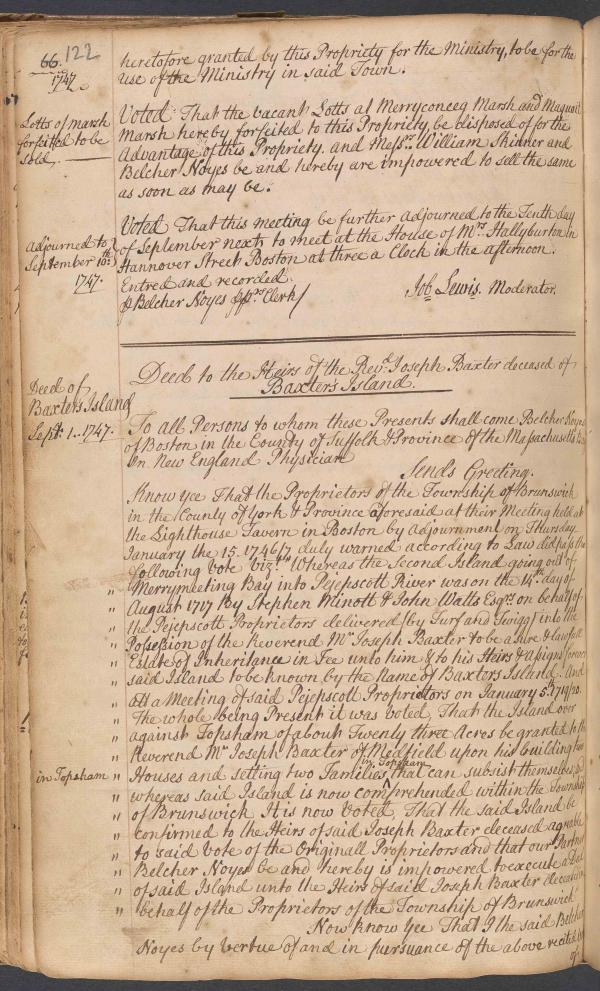 66. 122
1747.
heretofore granted by this Propriety for the Ministry, to be for the
use of the Ministry in said Town.
Lotts of marsh
forfeitted to be
sold.
Voted That the vacant Lotts at Merryconceg Marsh and Maquoit
Marsh hereby forfeited to this Propriety, be disposed of for the
Advantage of this Propriety. and Messrs. William Skinner and
Belcher Noyes be and hereby are impowered to sell the same
as soon as may be.
Adjourned to
September 10th
1747.
Voted That this meeting be further adjourned to the Tenth day
of September next, to meet at the House of Mrs. Hallyburton in
Hannover Street Boston at three a Clock in the afternoon.
Entred and recorded
Belcher Noyes Clerk
Job Lewis. Moderator.
Deed to the Heirs of the Revd. Joseph Baxter deceased of
Baxters Island.
Deed of
Baxters Island
Sept. 1. 1747.
To all Persons to whom these Presents shall come Belcher Noyes
of Boston in the County of Suffolk & Province of the Massachusetts
In New England Physician
Sends Greeting.
Know ye That the Proprietors of the Township of Brunswick
in the County of York & Province aforesaid at their Meeting held at
the Lighthouse Tavern in Boston by Adjournment on Thursday
January the 15. 1746/7 duly warned according to Law did pass the
following Vote Vizt. "Whereas the Second Island going out of
" Merrymeeting Bay into Pejepscott River was on the 14th day of
" August 1717 By Stephen Minott & John Watts Esqrs. on behalf of
" the Pejepscott Proprietors delivered (by Turf and Twigg) into the
" Possession of the Reverend Mr. Joseph Baxter to be a sure & lawfull
" Estate of Inheritance in Fee unto him & to his Heirs & Assigns forever
" said Island to be known by the name of Baxters Island. And
" att a Meeting of said Pejepscott Proprietors on January 5th 1719/20.
" The whole being Present it was Voted, That the Island over
" against Topsham of about Twenty three Acres be granted to the
" Reverend Mr. Joseph Baxter of Medfield upon his building two
in Topsham " Houses and setting two Families in Topsham that can subsist themselves,
" whereas said Island is now comprehended within the Township
" of Brunswick It is now Voted, That the said Island be
" confirmed to the Heirs of said Joseph Baxter deceased agreable
" to said Vote of the Originall Proprietors and that our Partner
" Belcher Noyes be and hereby is impowered to execute a Deed
" of said Island unto the Heirs of said Joseph Baxter deceased in
" behalf of the Proprietors of the Township of Brunswick
Now know Yee That I the said Belcher
Noyes by Vertue of and in pursuance of the above recited
of